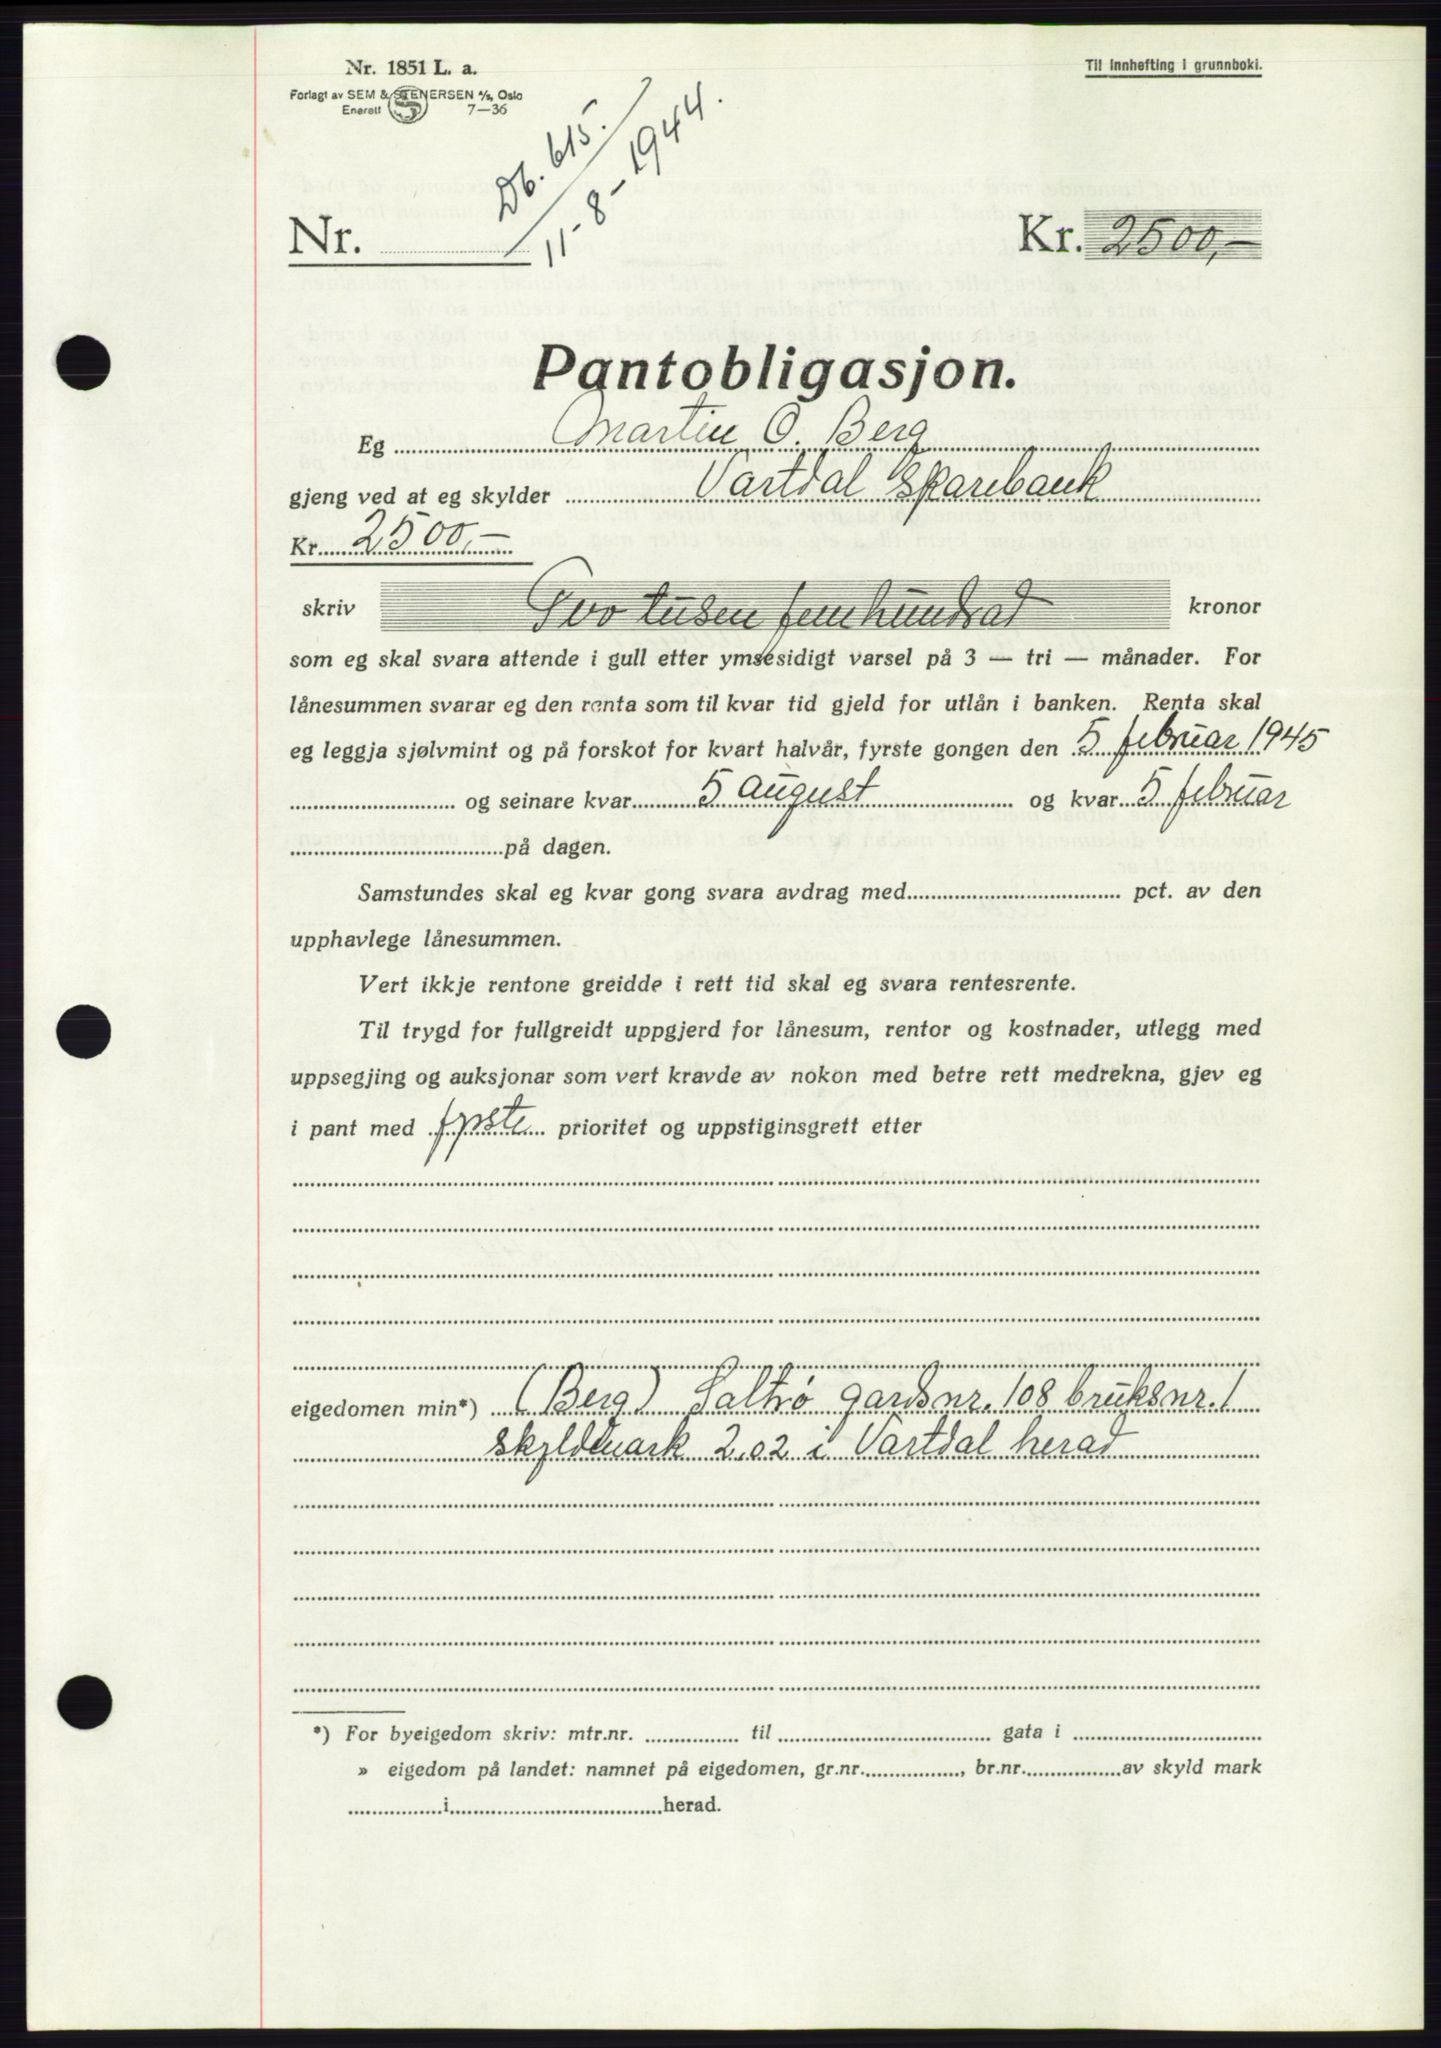 Nr. 1851 L. a.
Til innhefting i grunnboki.
Forlagt av SEM & STENERSEN A/s, Oslo
Enerett 7—36
Db. 615.
11-8-1944.
Nr.
Kr. 2500,-
Pantobligasjon.
Eg Martin O. Berg
gjeng ved at eg skylder Vartdal Sparebank
Kr. 2500,-
skriv Two tusen femhundrad kronor
som eg skal svara attende i gull etter ymsesidigt varsel på 3 — tri — månader. For
lånesummen svarar eg den renta som til kvar tid gjeld for utlån i banken. Renta skal
eg leggja sjølvmint og på forskot for kvart halvår, fyrste gongen den 5 februar 1945
og seinare kvar 5 august og kvar 5 februar
på dagen.
Samstundes skal eg kvar gong svara avdrag med pct. av den
upphavlege lånesummen.
Vert ikkje rentone greidde i rett tid skal eg svara rentesrente.
Til trygd for fullgreidt uppgjerd for lånesum, rentor og kostnader, utlegg med
uppsegjing og auksjonar som vert kravde av nokon med betre rett medrekna, gjev eg
i pant med fyrste prioritet og uppstiginsgrett etter
eigedomen min*) (Berg) Saltrø gardsnr. 108 bruksnr. 1
skyldmark 2,02 i Vartdal herad
*) For byeigedom skriv: mtr.nr. til gata i
» eigedom på landet: namnet på eigedomen, gr.nr. , br.nr. av skyld mark
i herad.